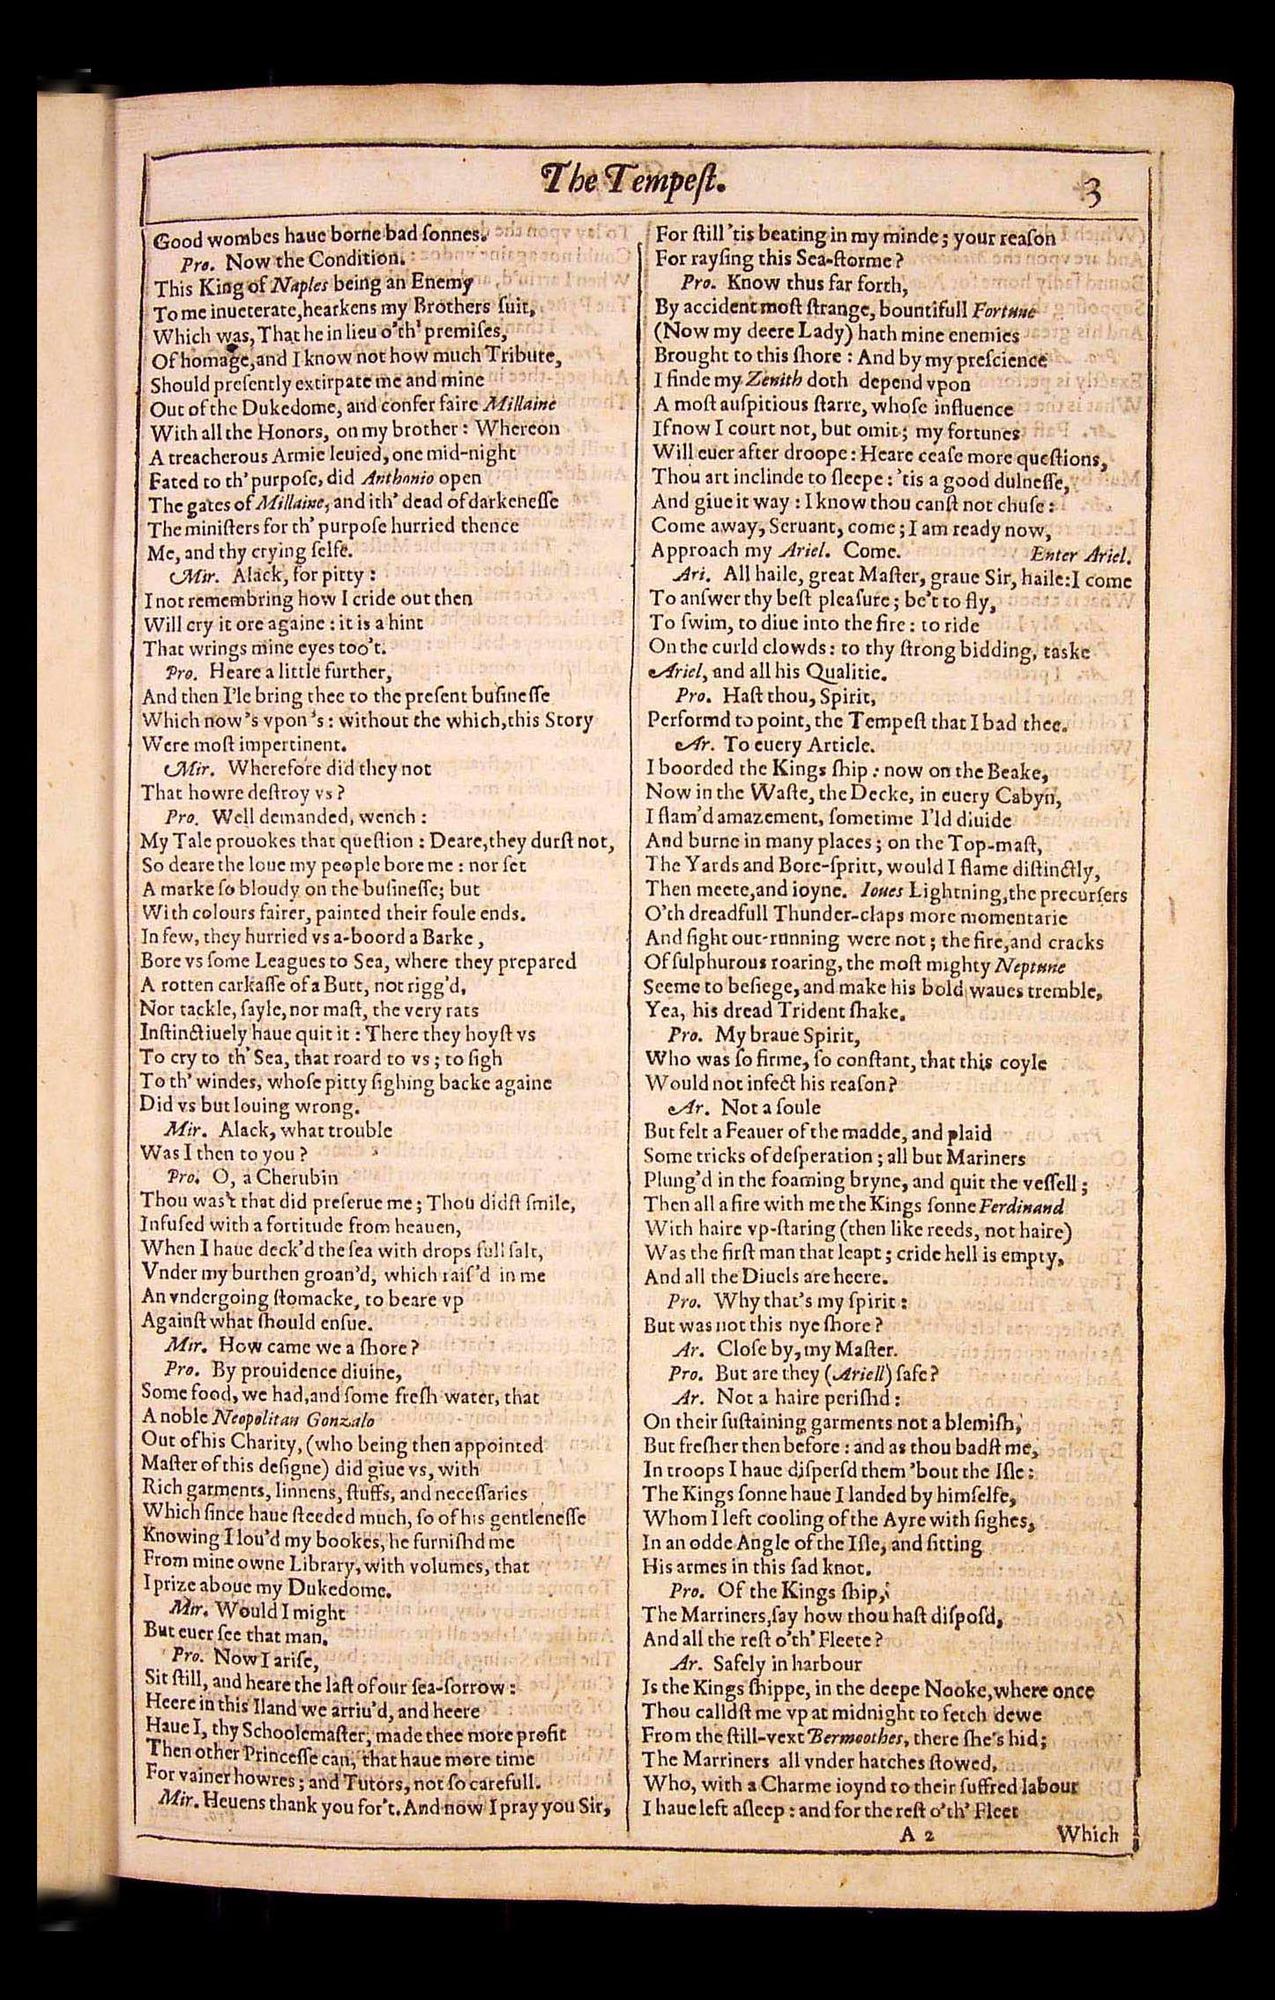 The Tempeſt.
3
Good wombes haue borne bad ſonnes.
Pro. Now the Condition.
This King of Naples being an Enemy
To me inueterate, hearkens my Brothers ſuit,
Which was, That he in lieu o'th' premiſes,
Of homage, and I know not how much Tribute,
Should preſently extirpate me and mine
Out of the Dukedome, and confer faire Millaine
With all the Honors, on my brother: Whereon
A treacherous Armie leuied, one mid-night
Fated to th' purpoſe, did Anthonio open
The gates of Millaine, and ith' dead of darkeneſſe
The miniſters for th' purpoſe hurried thence
Me, and thy crying ſelfe.
Mir. Alack, for pitty:
I not remembring how I cride out then
Will cry it ore againe: it is a hint
That wrings mine eyes too't.
Pro. Heare a little further,
And then I'le bring thee to the preſent buſineſſe
Which now's vpon's: without the which, this Story
Were moſt impertinent.
Mir. Wherefore did they not
That howre deſtroy vs?
Pro. Well demanded, wench:
My Tale prouokes that queſtion: Deare, they durſt not,
So deare the loue my people bore me: nor ſet
A marke ſo bloudy on the buſineſſe; but
With colours fairer, painted their foule ends.
In few, they hurried vs a-boord a Barke,
Bore vs ſome Leagues to Sea, where they prepared
A rotten carkaſſe of a Butt, not rigg'd,
Nor tackle, ſayle, nor maſt, the very rats
Inſtinctiuely haue quit it: There they hoyſt vs
To cry to th' Sea, that roard to vs; to ſigh
To th' windes, whoſe pitty ſighing backe againe
Did vs but louing wrong.
Mir. Alack, what trouble
Was I then to you?
Pro. O, a Cherubin
Thou was't that did preſerue me; Thou didſt ſmile,
Infuſed with a fortitude from heauen,
When I haue deck'd the ſea with drops full ſalt,
Vnder my burthen groan'd, which raiſ'd in me
An vndergoing ſtomacke, to beare vp
Againſt what ſhould enſue.
Mir. How came we a ſhore?
Pro. By prouidence diuine,
Some food, we had, and ſome freſh water, that
A noble Neopolitan Gonzalo
Out of his Charity, (who being then appointed
Maſter of this deſigne) did giue vs, with
Rich garments, linnens, ſtuffs, and neceſſaries
Which ſince haue ſteeded much, ſo of his gentleneſſe
Knowing I lou'd my bookes, he furniſhd me
From mine owne Library, with volumes, that
I prize aboue my Dukedome.
Mir. Would I might
But euer ſee that man.
Pro. Now I ariſe,
Sit ſtill, and heare the laſt of our ſea-ſorrow:
Heere in this Iland we arriu'd, and heere
Haue I, thy Schoolemaſter, made thee more profit
Then other Princeſſe can, that haue more time
For vainer howres; and Tutors, not ſo carefull.
Mir. Heuens thank you for't. And now I pray you Sir,
For ſtill 'tis beating in my minde; your reaſon
For rayſing this Sea-ſtorme?
Pro. Know thus far forth,
By accident moſt ſtrange, bountifull Fortune
(Now my deere Lady) hath mine enemies
Brought to this ſhore: And by my preſcience
I finde my Zenith doth depend vpon
A moſt auſpitious ſtarre, whoſe influence
If now I court not, but omit; my fortunes
Will euer after droope: Heare ceaſe more queſtions,
Thou art inclinde to ſleepe: 'tis a good dulneſſe,
And giue it way: I know thou canſt not chuſe:
Come away, Seruant, come; I am ready now,
Approach my Ariel. Come. Enter Ariel.
Ari. All haile, great Maſter, graue Sir, haile: I come
To anſwer thy beſt pleaſure; be't to fly,
To ſwim, to diue into the fire: to ride
On the curld clowds: to thy ſtrong bidding, taske
Ariel, and all his Qualitie.
Pro. Haſt thou, Spirit,
Performd to point, the Tempeſt that I bad thee.
Ar. To euery Article.
I boorded the Kings ſhip: now on the Beake,
Now in the Waſte, the Decke, in euery Cabyn,
I flam'd amazement, ſometime I'ld diuide
And burne in many places; on the Top-maſt,
The Yards and Bore-ſpritt, would I flame diſtinctly,
Then meete, and ioyne. Ioues Lightning, the precurſers
O'th dreadfull Thunder-claps more momentarie
And ſight out-running were not; the fire, and cracks
Of ſulphurous roaring, the moſt mighty Neptune
Seeme to beſiege, and make his bold waues tremble,
Yea, his dread Trident ſhake.
Pro. My braue Spirit,
Who was ſo firme, ſo conſtant, that this coyle
Would not infect his reaſon?
Ar. Not a ſoule
But felt a Feauer of the madde, and plaid
Some tricks of deſperation; all but Mariners
Plung'd in the foaming bryne, and quit the veſſell;
Then all a fire with me the Kings ſonne Ferdinand
With haire vp-ſtaring (then like reeds, not haire)
Was the firſt man that leapt; cride hell is empty,
And all the Diuels are heere.
Pro. Why that's my ſpirit:
But was not this nye ſhore?
Ar. Cloſe by, my Maſter.
Pro. But are they (Ariell) ſafe?
Ar. Not a haire periſhd:
On their ſuſtaining garments not a blemiſh,
But freſher then before: and as thou badſt me,
In troops I haue diſperſd them 'bout the Iſle:
The Kings ſonne haue I landed by himſelfe,
Whom I left cooling of the Ayre with ſighes,
In an odde Angle of the Iſle, and ſitting
His armes in this ſad knot.
Pro. Of the Kings ſhip,
The Marriners, ſay how thou haſt diſpoſd,
And all the reſt o'th' Fleete?
Ar. Safely in harbour
Is the Kings ſhippe, in the deepe Nooke, where once
Thou calldſt me vp at midnight to fetch dewe
From the ſtill-vext Bermoothes, there ſhe's hid;
The Marriners all vnder hatches ſtowed,
Who, with a Charme ioynd to their ſuffred labour
I haue left aſleep: and for the reſt o'th' Fleet
A 2 Which